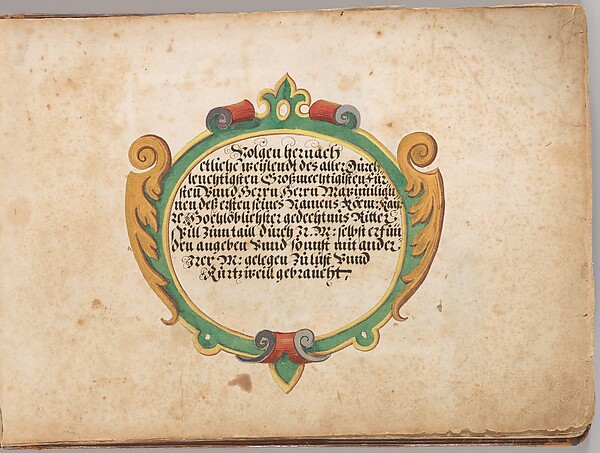 Volgen hernach
etliche weillendt des aller Durch
leuchtigisten Großmechtigisten Für
sten Vnnd Herrn Herrn Maximilian
nen deß ersten seines Namens Röm: Kay
Hochlöblichster gedechtnüs Ritter
Spill zum tail durch Ir. M: selbst erfun
den angeben Vnnd sonnst mit ander
Irer M: gelegen Zu lust Vnnd
Kurtzweill gebraucht.